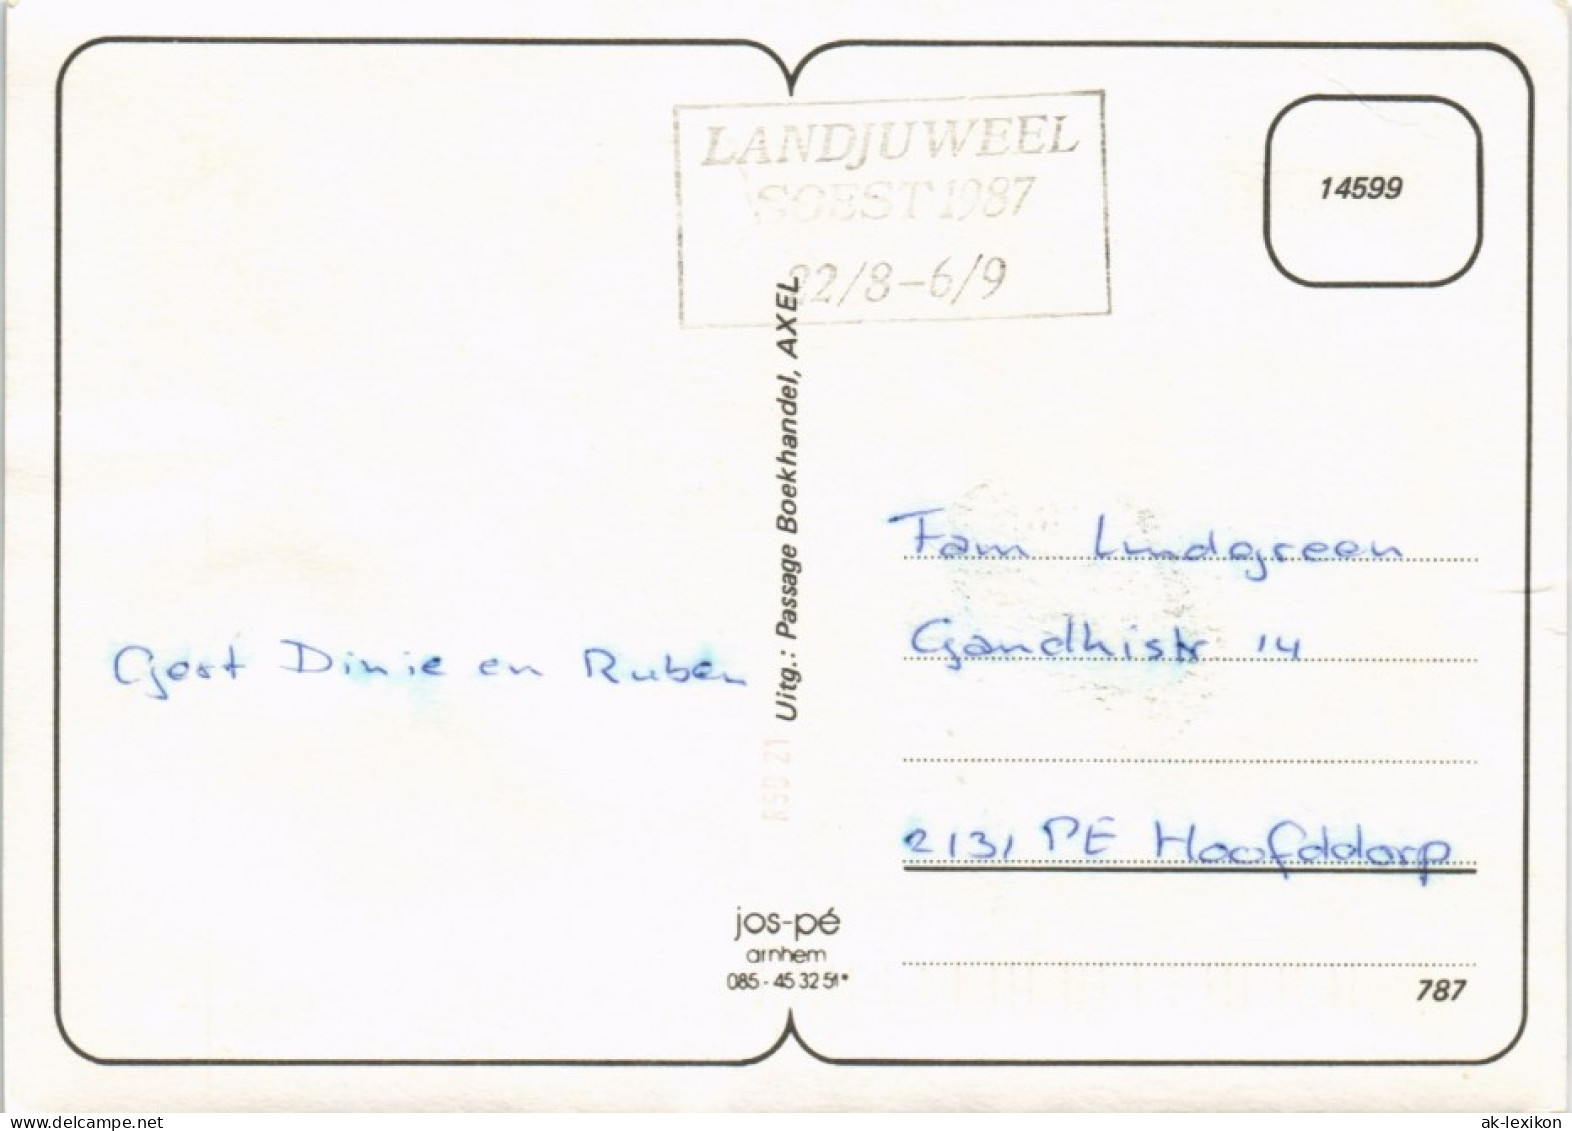 LANDJUWEEL
SOEST 1987
22/8-6/9
14599
Uitg.: Passage Boekhandel, AXEL
Gert Dinie en Ruben
Fam Lindgreen
Gandhistr 14
2131 PE Hoofddorp
jos-pé
arnhem
085-453251*
787
delcampe.net
ak-lexikon